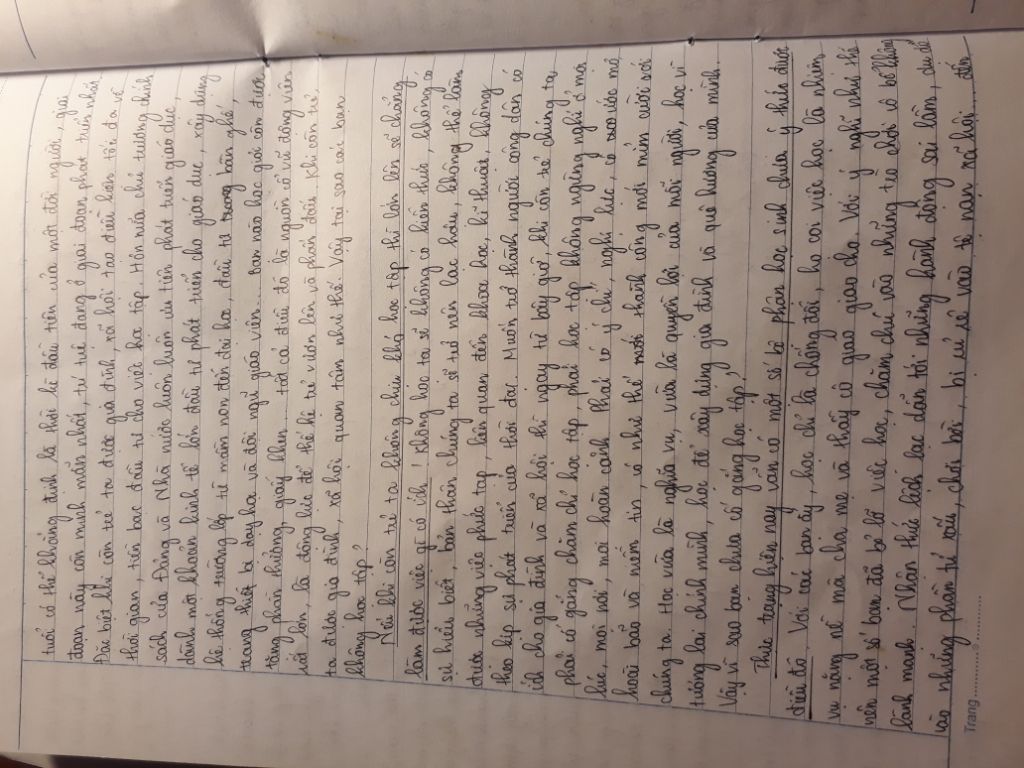 tuổi có thể khẳng định là thời kì đầu tiên của một đời người, giai
đoạn này còn minh mẫn nhất, tư tuệ đang ở giai đoạn phát triển nhất.
Đặc biệt khi còn trẻ ta được gia đình, xã hội tạo điều kiện tối đa về
thời gian, tiền bạc đầu tư cho việc học tập. Hơn nữa chủ trương chính
sách của Đảng và Nhà nước luôn luôn ưu tiên phát triển giáo dục,
dành một khoản kinh tế lớn đầu tư phát triển cho giáo dục, xây dựng
hệ thống trường lớp từ mầm non đến đại học, đầu tư trong bàn ghế,
trang thiết bị dạy học và đội ngũ giáo viên... Bạn nào học giỏi còn được
tặng phần thưởng, giấy khen... tất cả điều đó là nguồn cổ vũ động viên
rất lớn, là động lực để thế hệ trẻ vươn lên và phấn đấu. Khi còn trẻ,
ta được gia đình, xã hội quan tâm như thế. Vậy tại sao các bạn
không học tập?
Nếu khi còn trẻ ta không chịu khó học tập thì lớn lên sẽ chẳng
làm được việc gì có ích! Không học ta sẽ không có kiến thức, không có
sự hiểu biết, bản thân chúng ta sẽ trở nên lạc hậu, không thể làm
được những việc phức tạp, liên quan đến khoa học, kĩ thuật, không
theo kịp sự phát triển của thời đại. Muốn trở thành người công dân có
ích cho gia đình và xã hội thì ngay từ bây giờ, khi còn trẻ chúng ta
phải cố gắng chăm chỉ học tập, phải học tập không ngừng nghỉ ở mọi
lúc, mọi nơi, mọi hoàn cảnh. Phải có ý chí, nghị lực, có ước mơ
hoài bão và niềm tin, có như thế mới thành công mới mỉm cười với
chúng ta. Học vừa là nghĩa vụ, vừa là quyền lợi của mỗi người, học vì
tương lai chính mình, học để xây dựng gia đình và quê hương của mình.
Vậy vì sao bạn chưa cố gắng học tập?
Thực trạng hiện nay vẫn có một số bộ phận học sinh chưa ý thức được
điều đó. Với các bạn ấy, học chỉ là chống đối, họ coi việc học là nhiệm
vụ nặng nề mà cha mẹ và thầy cô giáo giao cho. Với ý nghĩ như thế
nên một số bạn đã bỏ lỡ việc học, chăm chú vào những trò chơi vô bổ không
lành mạnh. Nhận thức lệch lạc dẫn tới những hành động sai lầm, dễ
vào những phần tử xấu, chơi bời, bị rủ rê vào tệ nạn xã hội... đến
Trang